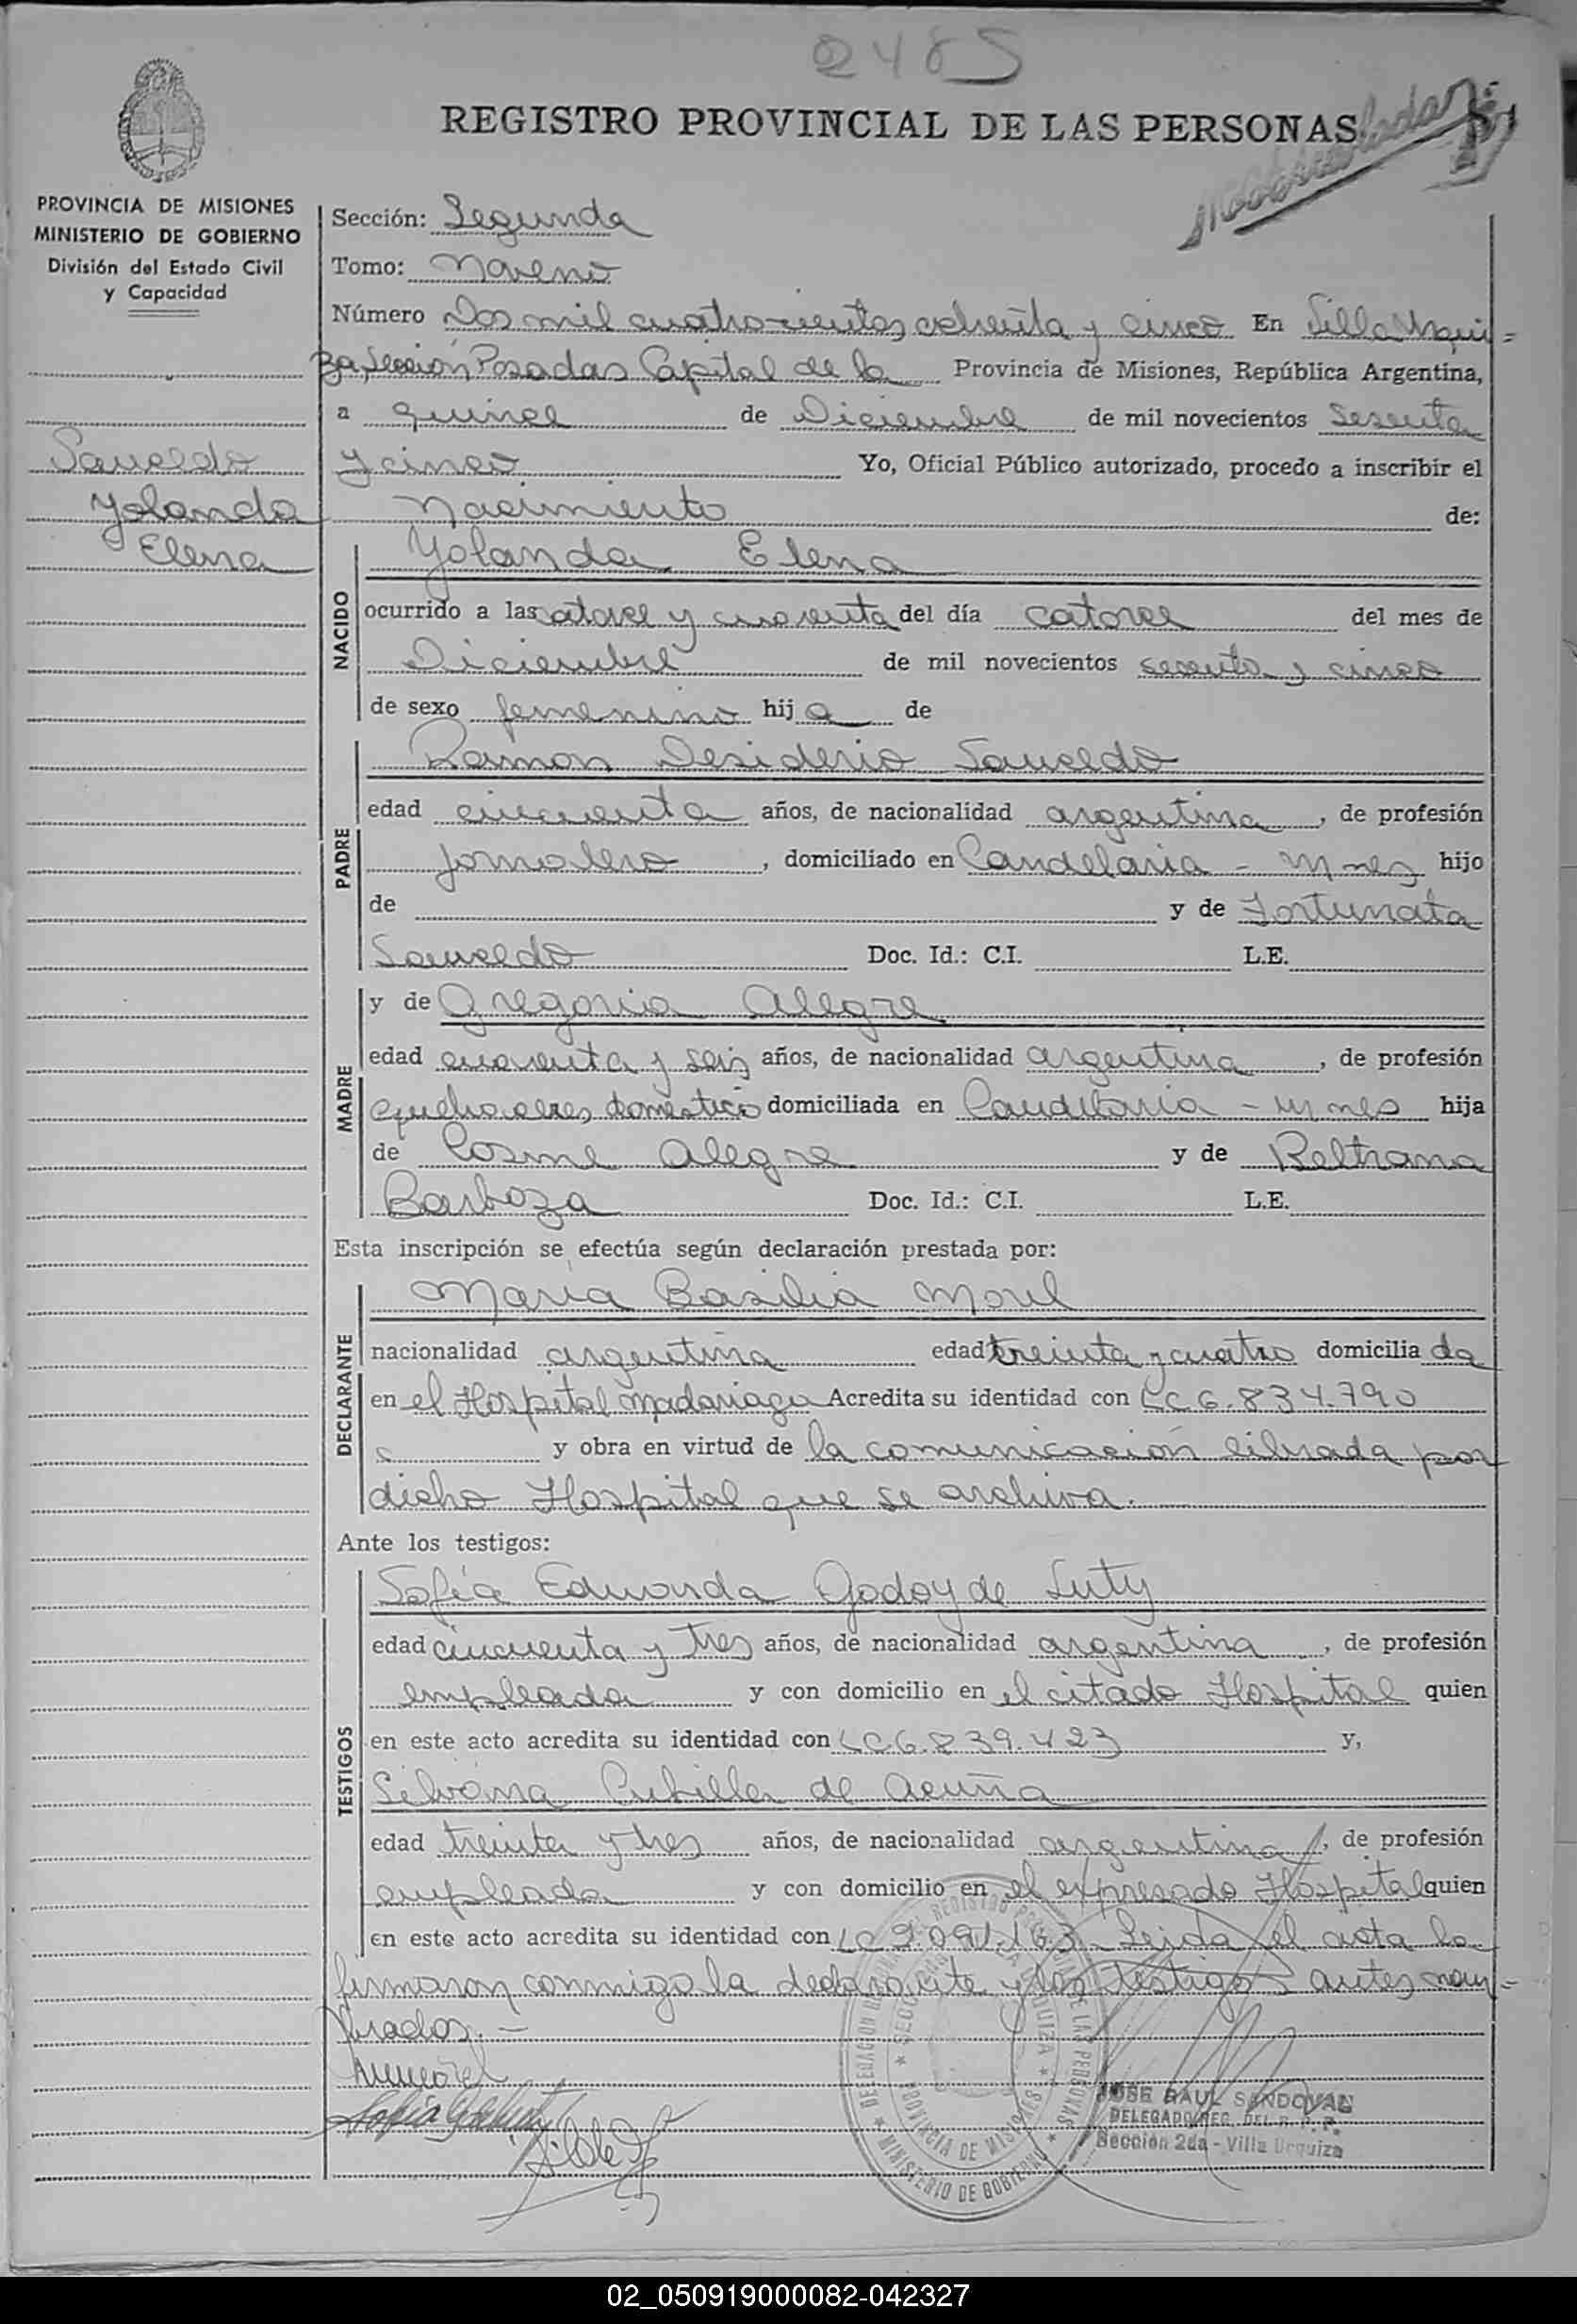 2485
REGISTRO PROVINCIAL DE LAS PERSONAS
PROVINCIA DE MISIONES
MINISTERIO DE GOBIERNO
División del Estado Civil
y Capacidad
Sección: Segunda
Tomo: Noveno
Número Dos mil cuatrocientos ochenta y cinco En Villa Urqui-
za, Sección Posadas Capital de la Provincia de Misiones, República Argentina,
a quince de Diciembre de mil novecientos Sesenta
y cinco Yo, Oficial Público autorizado, procedo a inscribir el
Nacimiento de:
Sauceldo
Yolanda
Elena
NACIDO
Yolanda Elena
ocurrido a las catorce y cuarenta del día catorce del mes de
Diciembre de mil novecientos sesenta y cinco
de sexo femenino hija de
PADRE
Ramon Desiderio Sauceldo
edad cincuenta años, de nacionalidad argentina, de profesión
jornalero, domiciliado en Candelaria - Mnes hijo
de y de Fortunata
Sauceldo Doc. Id.: C.I. L.E.
MADRE
y de Gregoria Alegre
edad cuarenta y seis años, de nacionalidad argentina, de profesión
quehaceres domestico domiciliada en Candelaria - Mnes hija
de Cosme Alegre y de Beltrana
Barboza Doc. Id.: C.I. L.E.
Esta inscripción se efectúa según declaración prestada por:
DECLARANTE
Maria Basilia Morel
nacionalidad argentina edad treinta y cuatro domiciliada
en el Hospital Madariaga Acredita su identidad con LC 6.834.790
y obra en virtud de la comunicación librada por
dicho Hospital que se archiva.
Ante los testigos:
TESTIGOS
Sofía Eduarda Godoy de Luty
edad cincuenta y tres años, de nacionalidad argentina, de profesión
empleada y con domicilio en el citado Hospital quien
en este acto acredita su identidad con LC 6.839.423 y,
Silvana Cubilla de Acuña
edad treinta y tres años, de nacionalidad argentina, de profesión
empleada y con domicilio en el expresado Hospital quien
en este acto acredita su identidad con LC 9.091.163 - Leida el acta la
firmaron conmigo la declarante y los testigos antes nom-
brados. -
JOSE RAUL SANDOVAL
DELEGADO REC. DEL R. P. P.
Sección 2da - Villa Urquiza
02_050919000082-042327